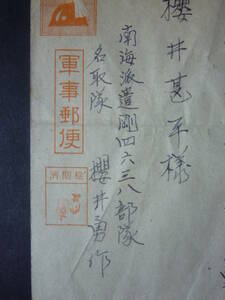 櫻井甚平様
南海派遣剛四六三八部隊
名取隊 櫻井勇作
軍事郵便
検閲済